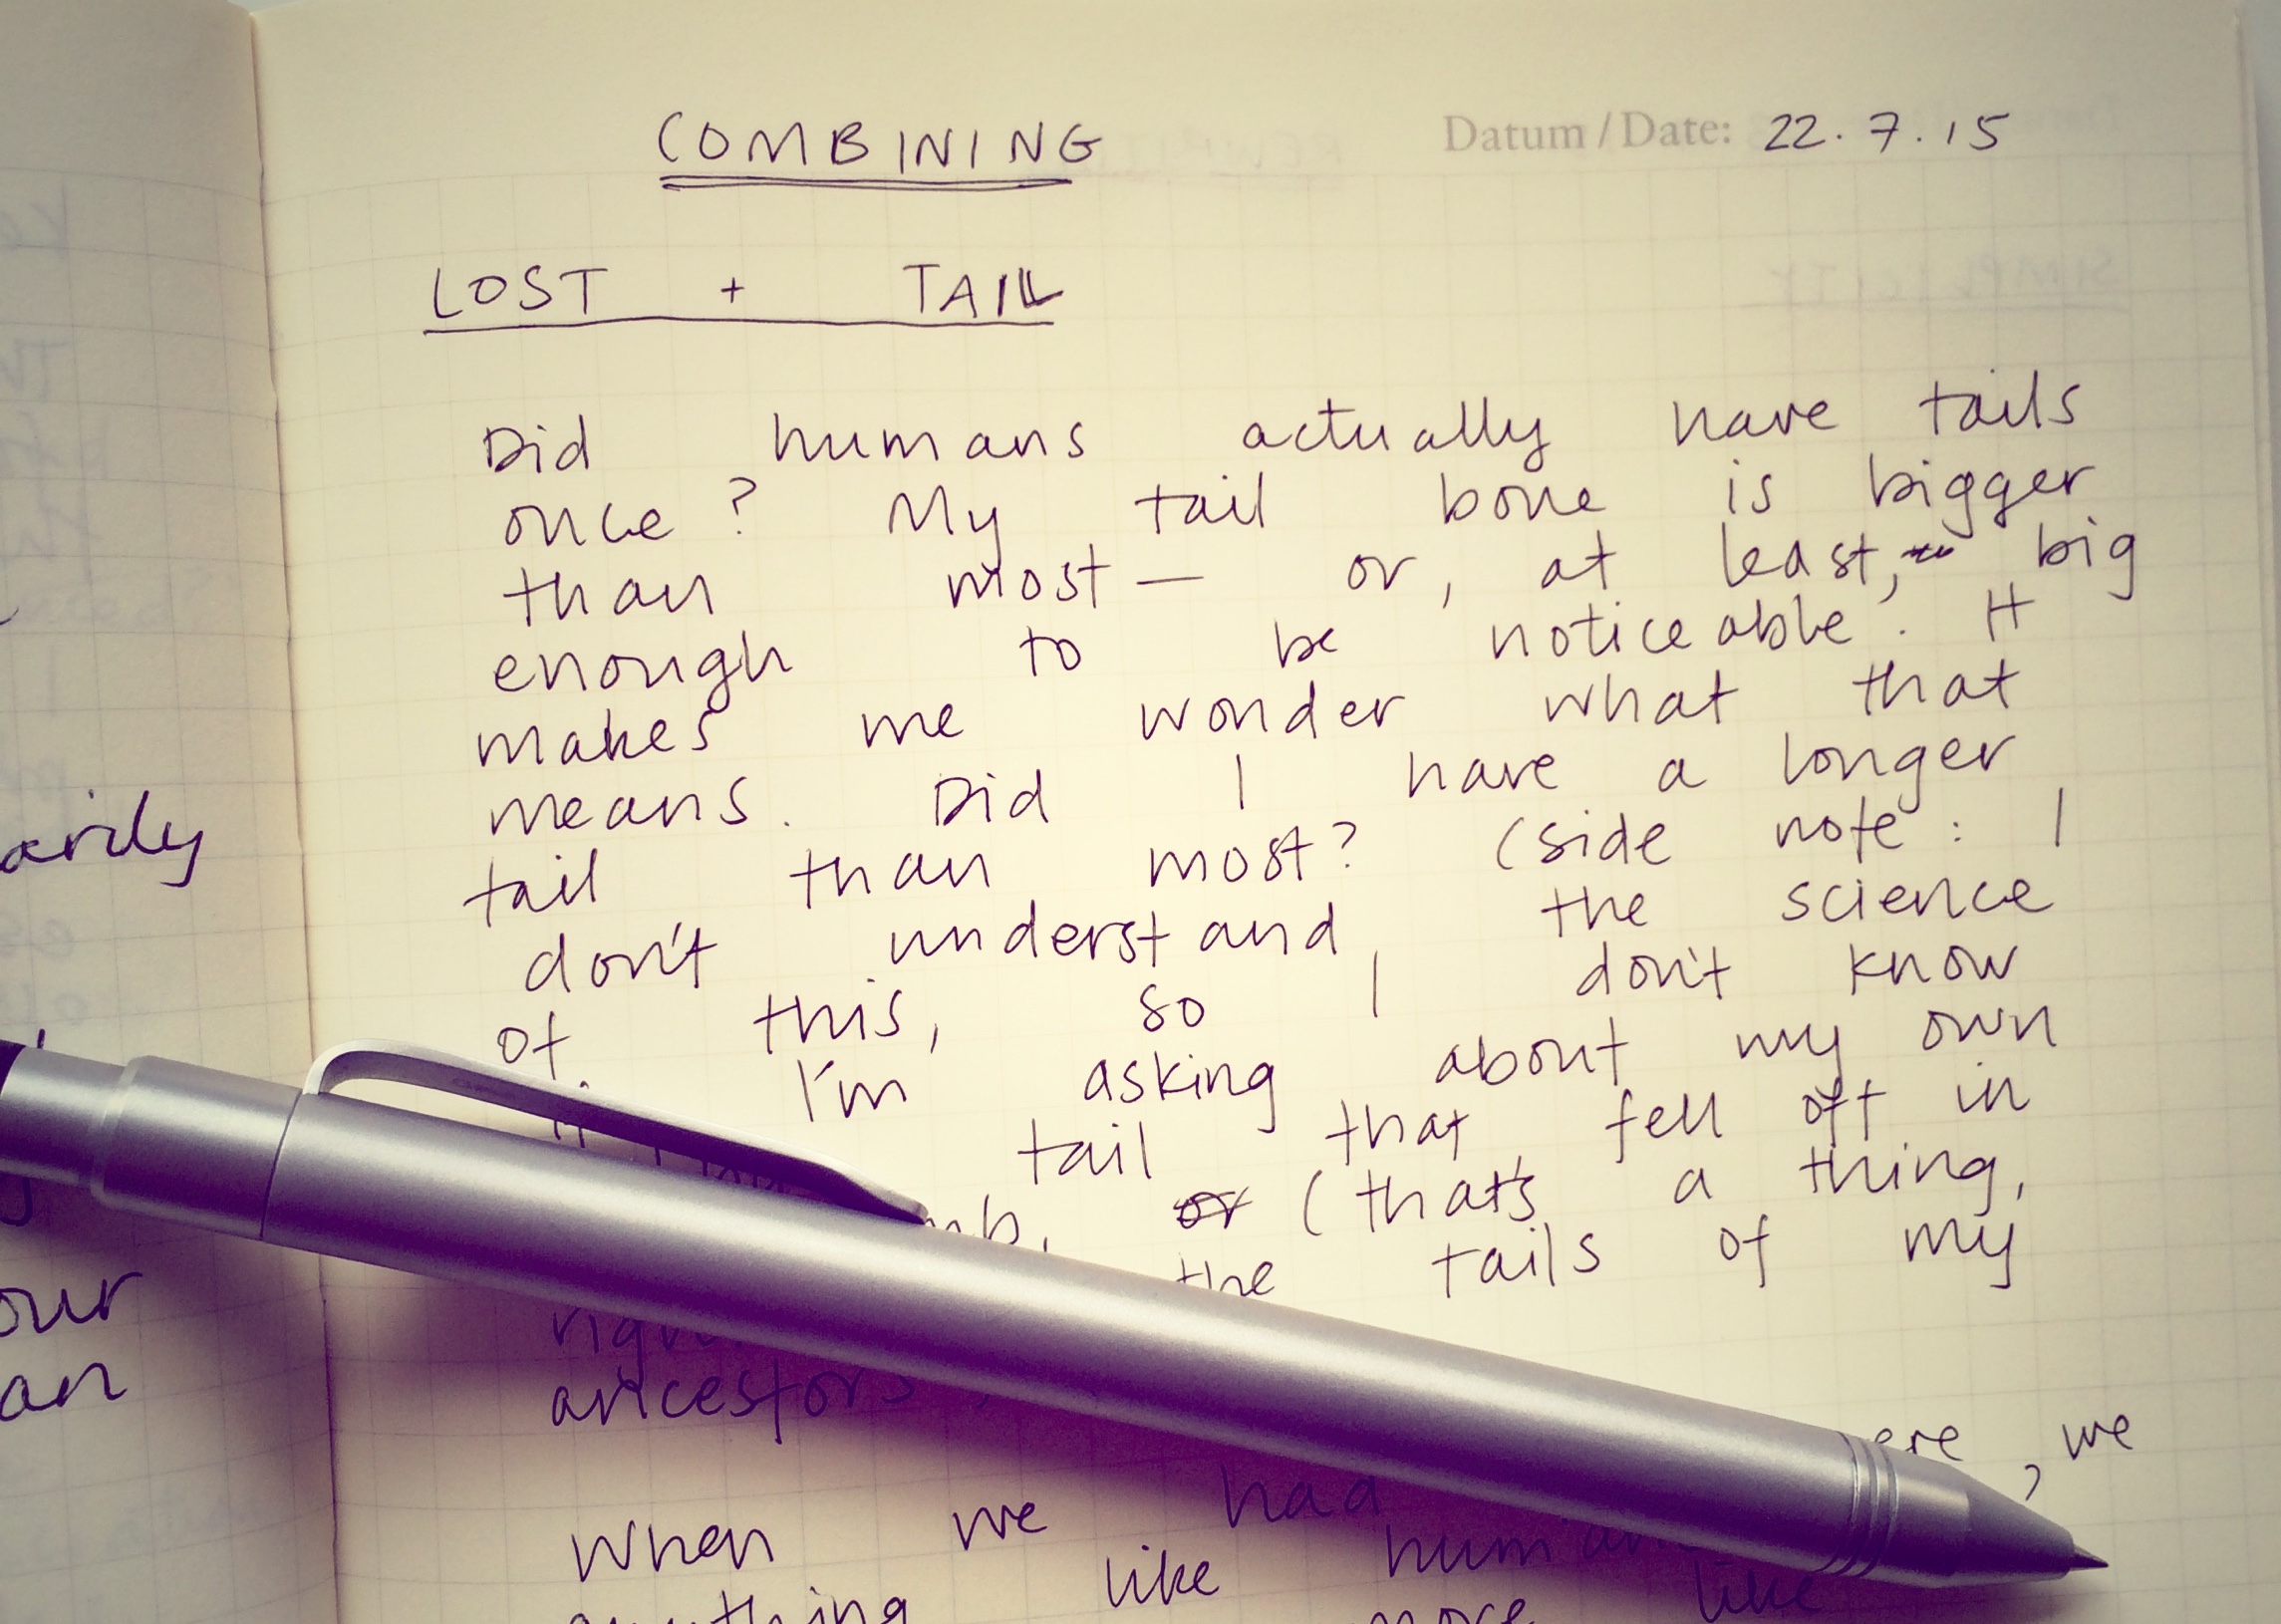 COMBINING
Datum / Date: 22.7.15
LOST + TAIL
Did humans actually have tails
once? My tail bone is bigger
than most — or, at least, big
enough to be noticeable. It
makes me wonder what that
means. Did I have a longer
tail than most? (side note: I
don't understand the science
of this, so I don't know
if I'm asking about my own
tail that fell off in
or (that's a thing,
the tails of my
ancestors
we
When we had
anything like human
more like
arily
our
an
SIMPLICITY